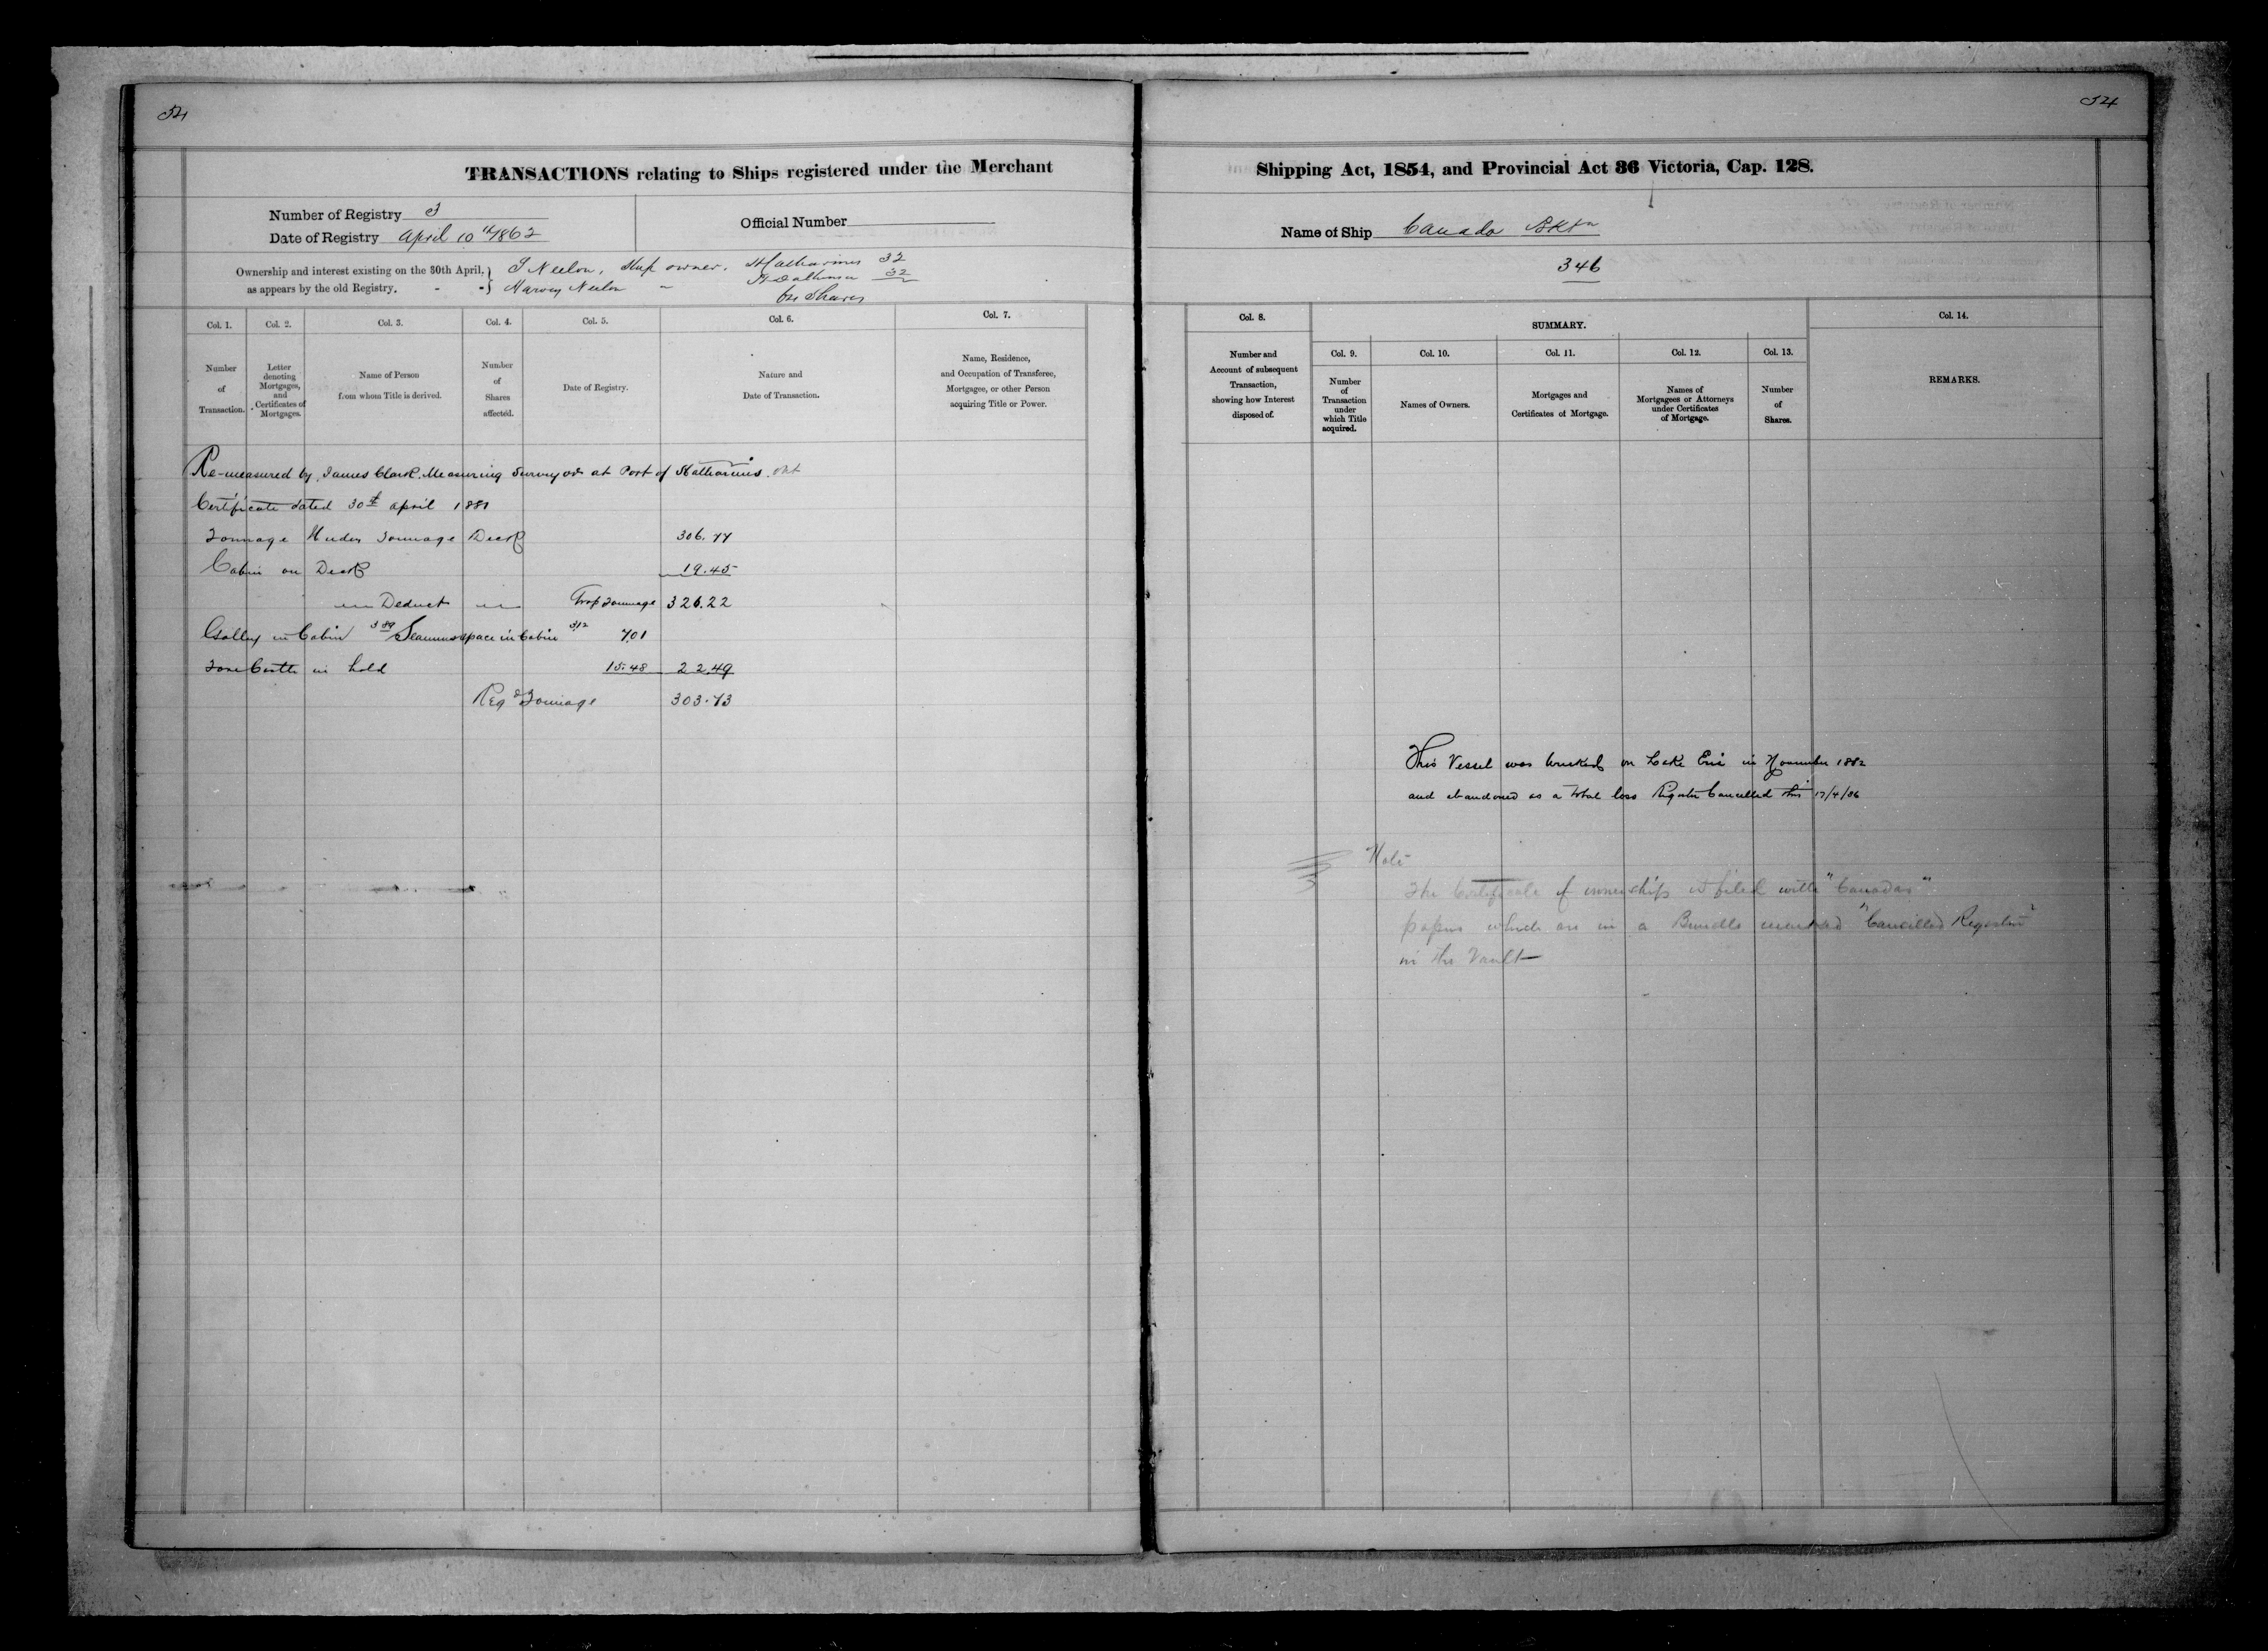 54
54
TRANSACTIONS relating to Ships registered under the Merchant
Shipping Act, 1854, and Provincial Act 36 Victoria, Cap. 128.
Number of Registry 3
Date of Registry April 10th 1862
Official Number
Name of Ship Canada Bktn
346
Ownership and interest existing on the 30th April,
as appears by the old Registry.
S Neelon, Ship owner. St Catharines 32
Harvey Neelon " St Catharines 32
Shares
Col. 1.
Number
of
Transaction.
Col. 2.
Letter
denoting
Mortgages,
and
Certificates of
Mortgages.
Col. 3.
Name of Person
from whom Title is derived.
Col. 4.
Number
of
Shares
affected.
Col. 5.
Date of Registry.
Col. 6.
Nature and
Date of Transaction.
Col. 7.
Name, Residence,
and Occupation of Transferee,
Mortgagee, or other Person
acquiring Title or Power.
Col. 8.
Number and
Account of subsequent
Transaction,
showing how Interest
disposed of.
SUMMARY.
Col. 9.
Number
of
Transaction
under
which Title
acquired.
Col. 10.
Names of Owners.
Col. 11.
Mortgages and
Certificates of Mortgage.
Col. 12.
Names of
Mortgagees or Attorneys
under Certificates
of Mortgage.
Col. 13.
Number
of
Shares.
Col. 14.
REMARKS.
Re-measured by James Clark Measuring Surveyor at Port of St Catharines. Ont
Certificate dated 30th April 1881
Tonnage Under Tonnage Deck 306.77
Cabin on Deck 19.45
Deduct Grop Tonnage 326.22
Galley in Cabin 3.89 Seamens space in Cabin 3.12 7.01
Fore Castle in hold 15.48 22.49
Regd Tonnage 303.73
This Vessel was wrecked on Lake Erie in November 1882
and abandoned as a total loss Register Cancelled this 17/4/86
Note
The Certificate of ownership is filed with "Canadas"
papers which are in a Bundle marked "Cancelled Registers"
in the Vault